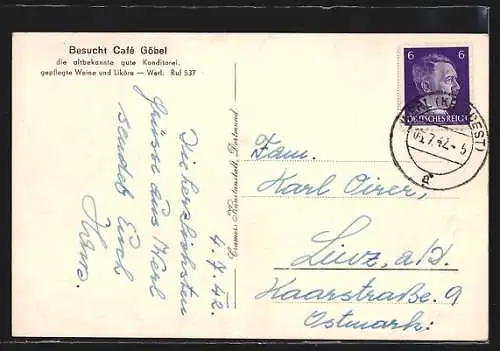 Besucht Café Göbel
die altbekannte gute Konditorei.
gepflegte Weine und Liköre — Werl. Ruf 537
4. 7. 42.
Die herzlichsten
Grüsse aus Werl
sendet Euch
Hans.
Cramers Kunstanstalt, Dortmund
6 6
DEUTSCHES REICH
WERL (KR SOEST)
05.7.42.-5
a
Fam.
Karl Oirer,
Linz, a/D.
Haarstraße 9
Ostmark.